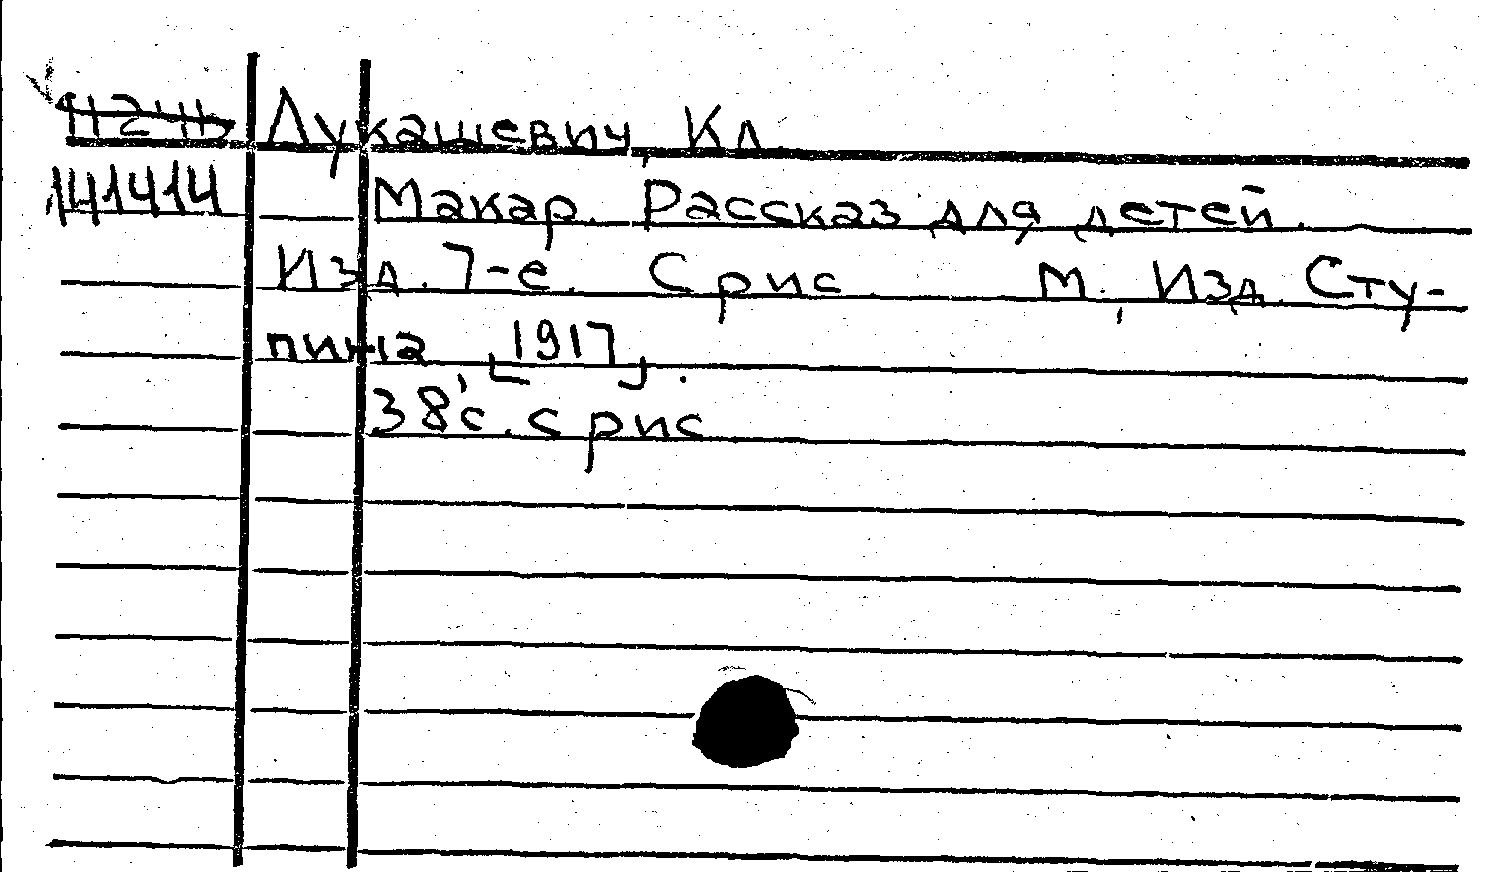 Лукашевич, Кл.
141414
Макар. Рассказ для детей.
Изд. 7-е. С рис. М., Изд. Сту-
пина [1917].
38 с. с рис.